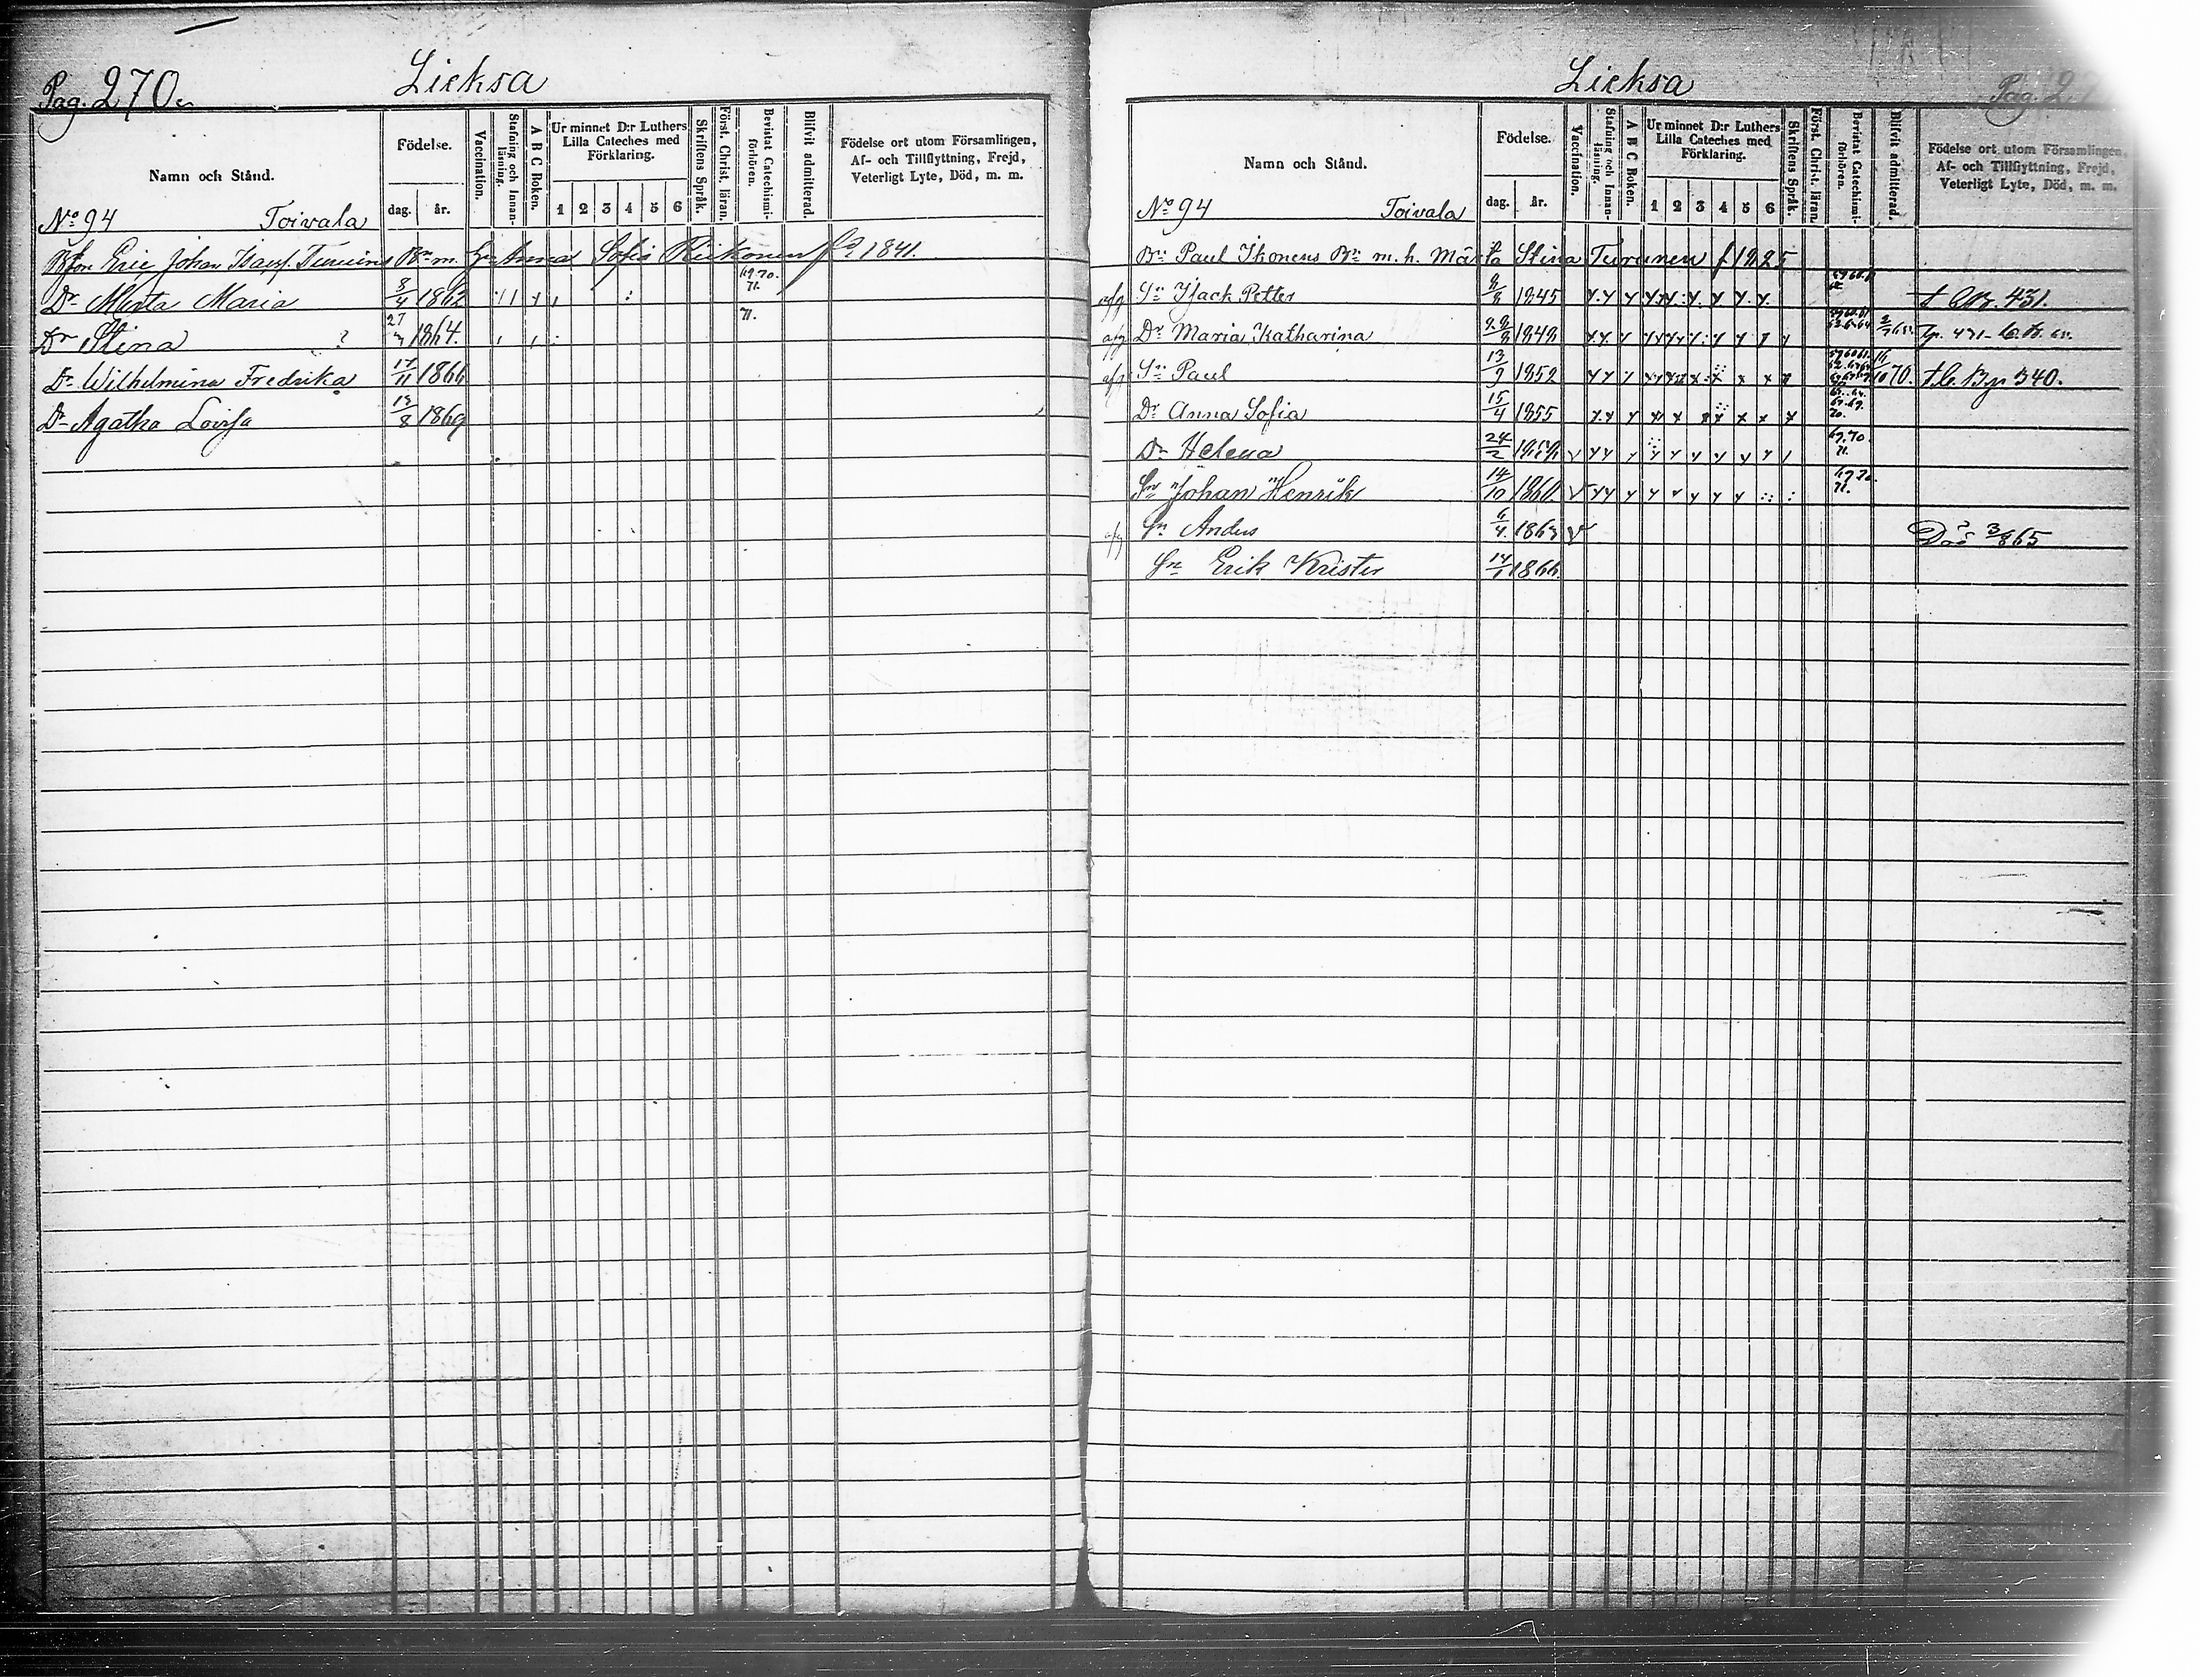 Pag. 270.
Lieksa
Namn och Stånd.
Födelse.
dag. år.
Vaccination.
Stafning och Innanläsning.
A B C Boken.
Ur minnet D:r Luthers Lilla Cateches med Förklaring.
1 2 3 4 5 6
Skriftens Språk.
Först. Christ. läran.
Bevistat Catechismiförhören.
Blifvit admitterad.
Födelse ort utom Församlingen,
Af- och Tillflyttning, Frejd,
Veterligt Lyte, Död, m. m.
No 94 Toivala
Eric Johan Isaksf. Turuins Bn m. h. Anna Sofia Riikonen fd 1841.
Dr Märta Maria 8/4 1862 69.70. 71.
Dr Stina ? 27 1864. 71.
Dr Wilhelmina Fredrika 17/11 1866
Dr Agatha Lovisa 18/8 1869
Lieksa
Pag. 2
Namn och Stånd.
Födelse.
dag. år.
Vaccination.
Stafning och Innanläsning.
A B C Boken.
Ur minnet D:r Luthers Lilla Cateches med Förklaring.
1 2 3 4 5 6
Skriftens Språk.
Först. Christ. läran.
Bevistat Catechismiförhören.
Blifvit admitterad.
Födelse ort utom Församlingen,
Af- och Tillflyttning, Frejd,
Veterligt Lyte, Död, m. m.
No 94 Toivala
Bn Paul Ikonens Bn m. h. Märta Stina Turunen f 1825
Sn Isack Petter 8/8 1845 431.
Dr Maria Katharina 1848
Sn Paul 13/9 1852 16/10 70. 340.
Dr Anna Sofia 15/4 1855
Dr Helena 24/2 1858 69.70. 71.
Sn Johan Henrik 14/10 1860. 69.70. 71.
Sn Anders 6/4 1863
Sn Erik Krister 14/1 1866.